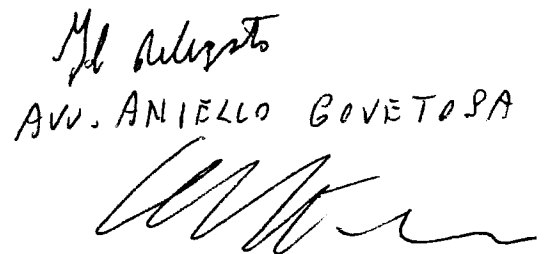 Il delegato
AVV. ANIELLO GOVETOSA